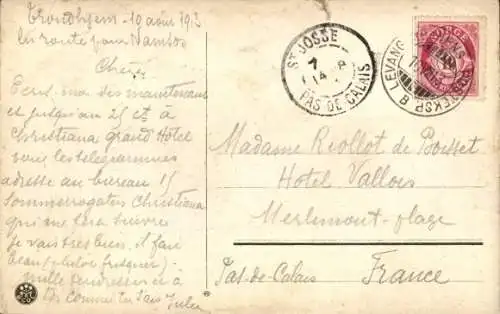 Trondhjem - 19 aout 1913
en route pour Namsos
Chérie
Ecris moi des maintenant
et jusqu'au 25 ct à
Christiana Grand Hotel
voir les télégrammes
adresse au bureau 15
Sommerrogaten Christiana
qui me fera suivre
je vais très bien, il fait
beau
mille tendresses à
ST JOSSE
PAS DE CALAIS
NORGE
LEVANG
EKSP. B
Madame Riollot de Boisset
Hotel Vallois
Merlimont-plage
Pas-de-Calais France